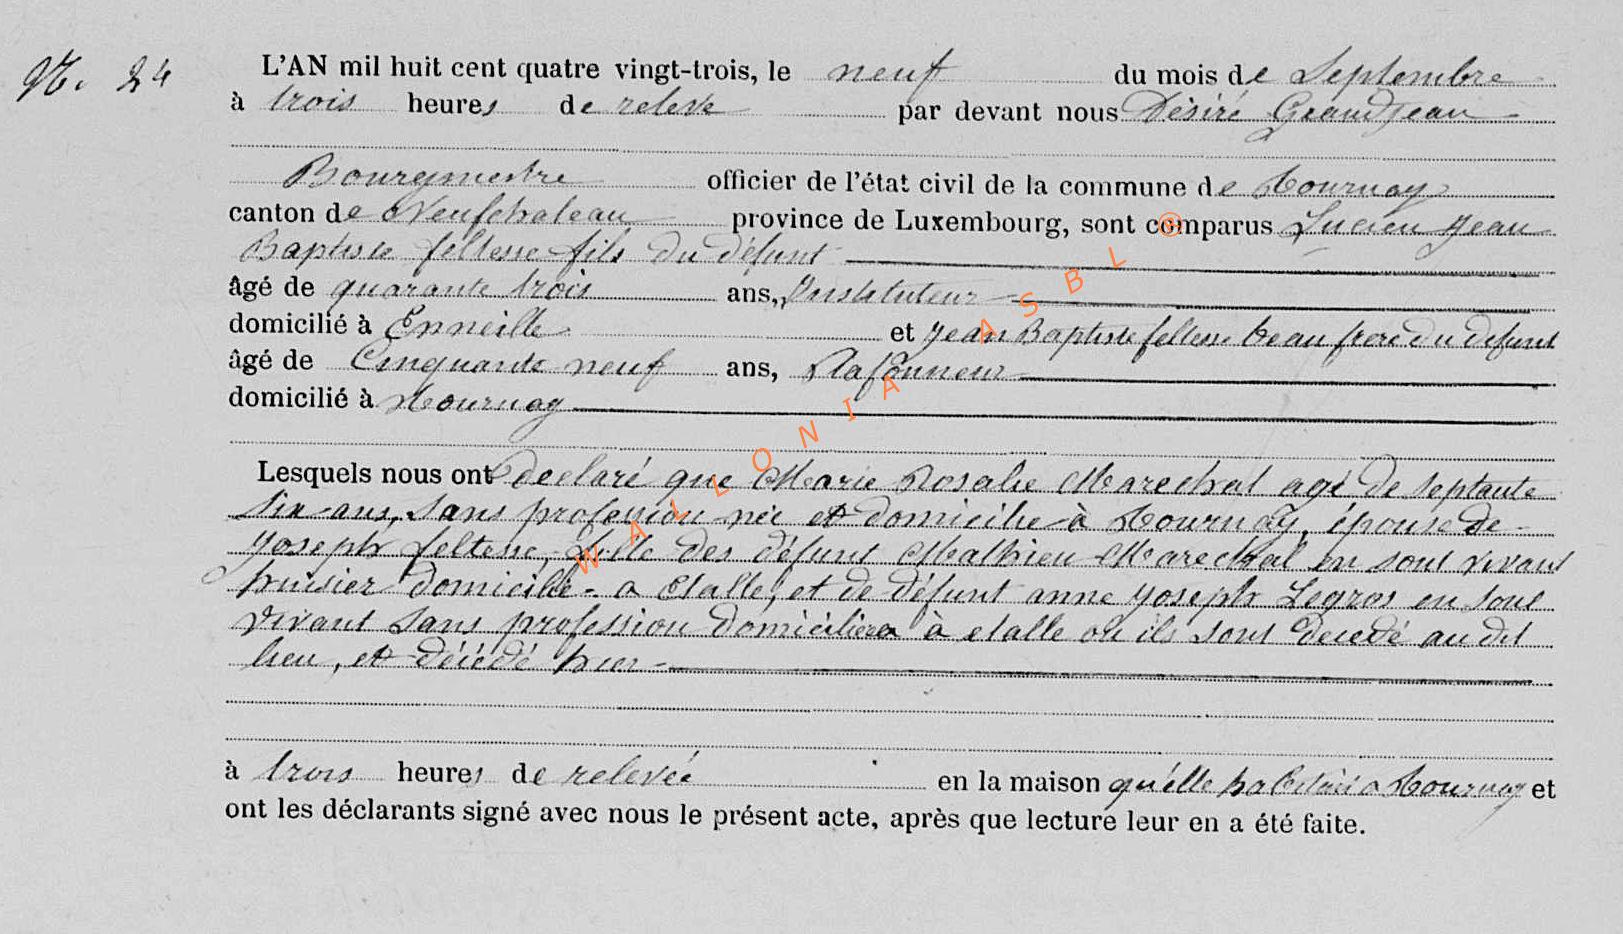 N. 24
L'AN mil huit cent quatre vingt-trois, le neuf du mois de Septembre
à trois heures de relevé par devant nous Désiré Grandjean
Bourgmestre officier de l'état civil de la commune de Tournay
canton de Neufchateau province de Luxembourg, sont comparus Lucien Jean
Baptiste feltesse fils du défunt
âgé de quarante trois ans, Instituteur
domicilié à Enneille et Jean Baptiste feltesse beau frere du defunt
âgé de Cinquante neuf ans, Plafonneur
domicilié à Tournay
Lesquels nous ont declaré que Marie Rosalie Marechal agé de septante
six ans, sans profession née et domicilie à Tournay, épouse de
Joseph feltesse, fille des défunt Mathieu Marechal en sont vivant
huisier domicilié a Etalle, et de défunt anne Joseph Legros en sont
vivant sans profession domiciliée à etalle ou ils sont decedé au dit
lieu, et décédé hier
à trois heures de relevée en la maison qu'elle habitait a Tournay et
ont les déclarants signé avec nous le présent acte, après que lecture leur en a été faite.
WALLONIA ASBL ®